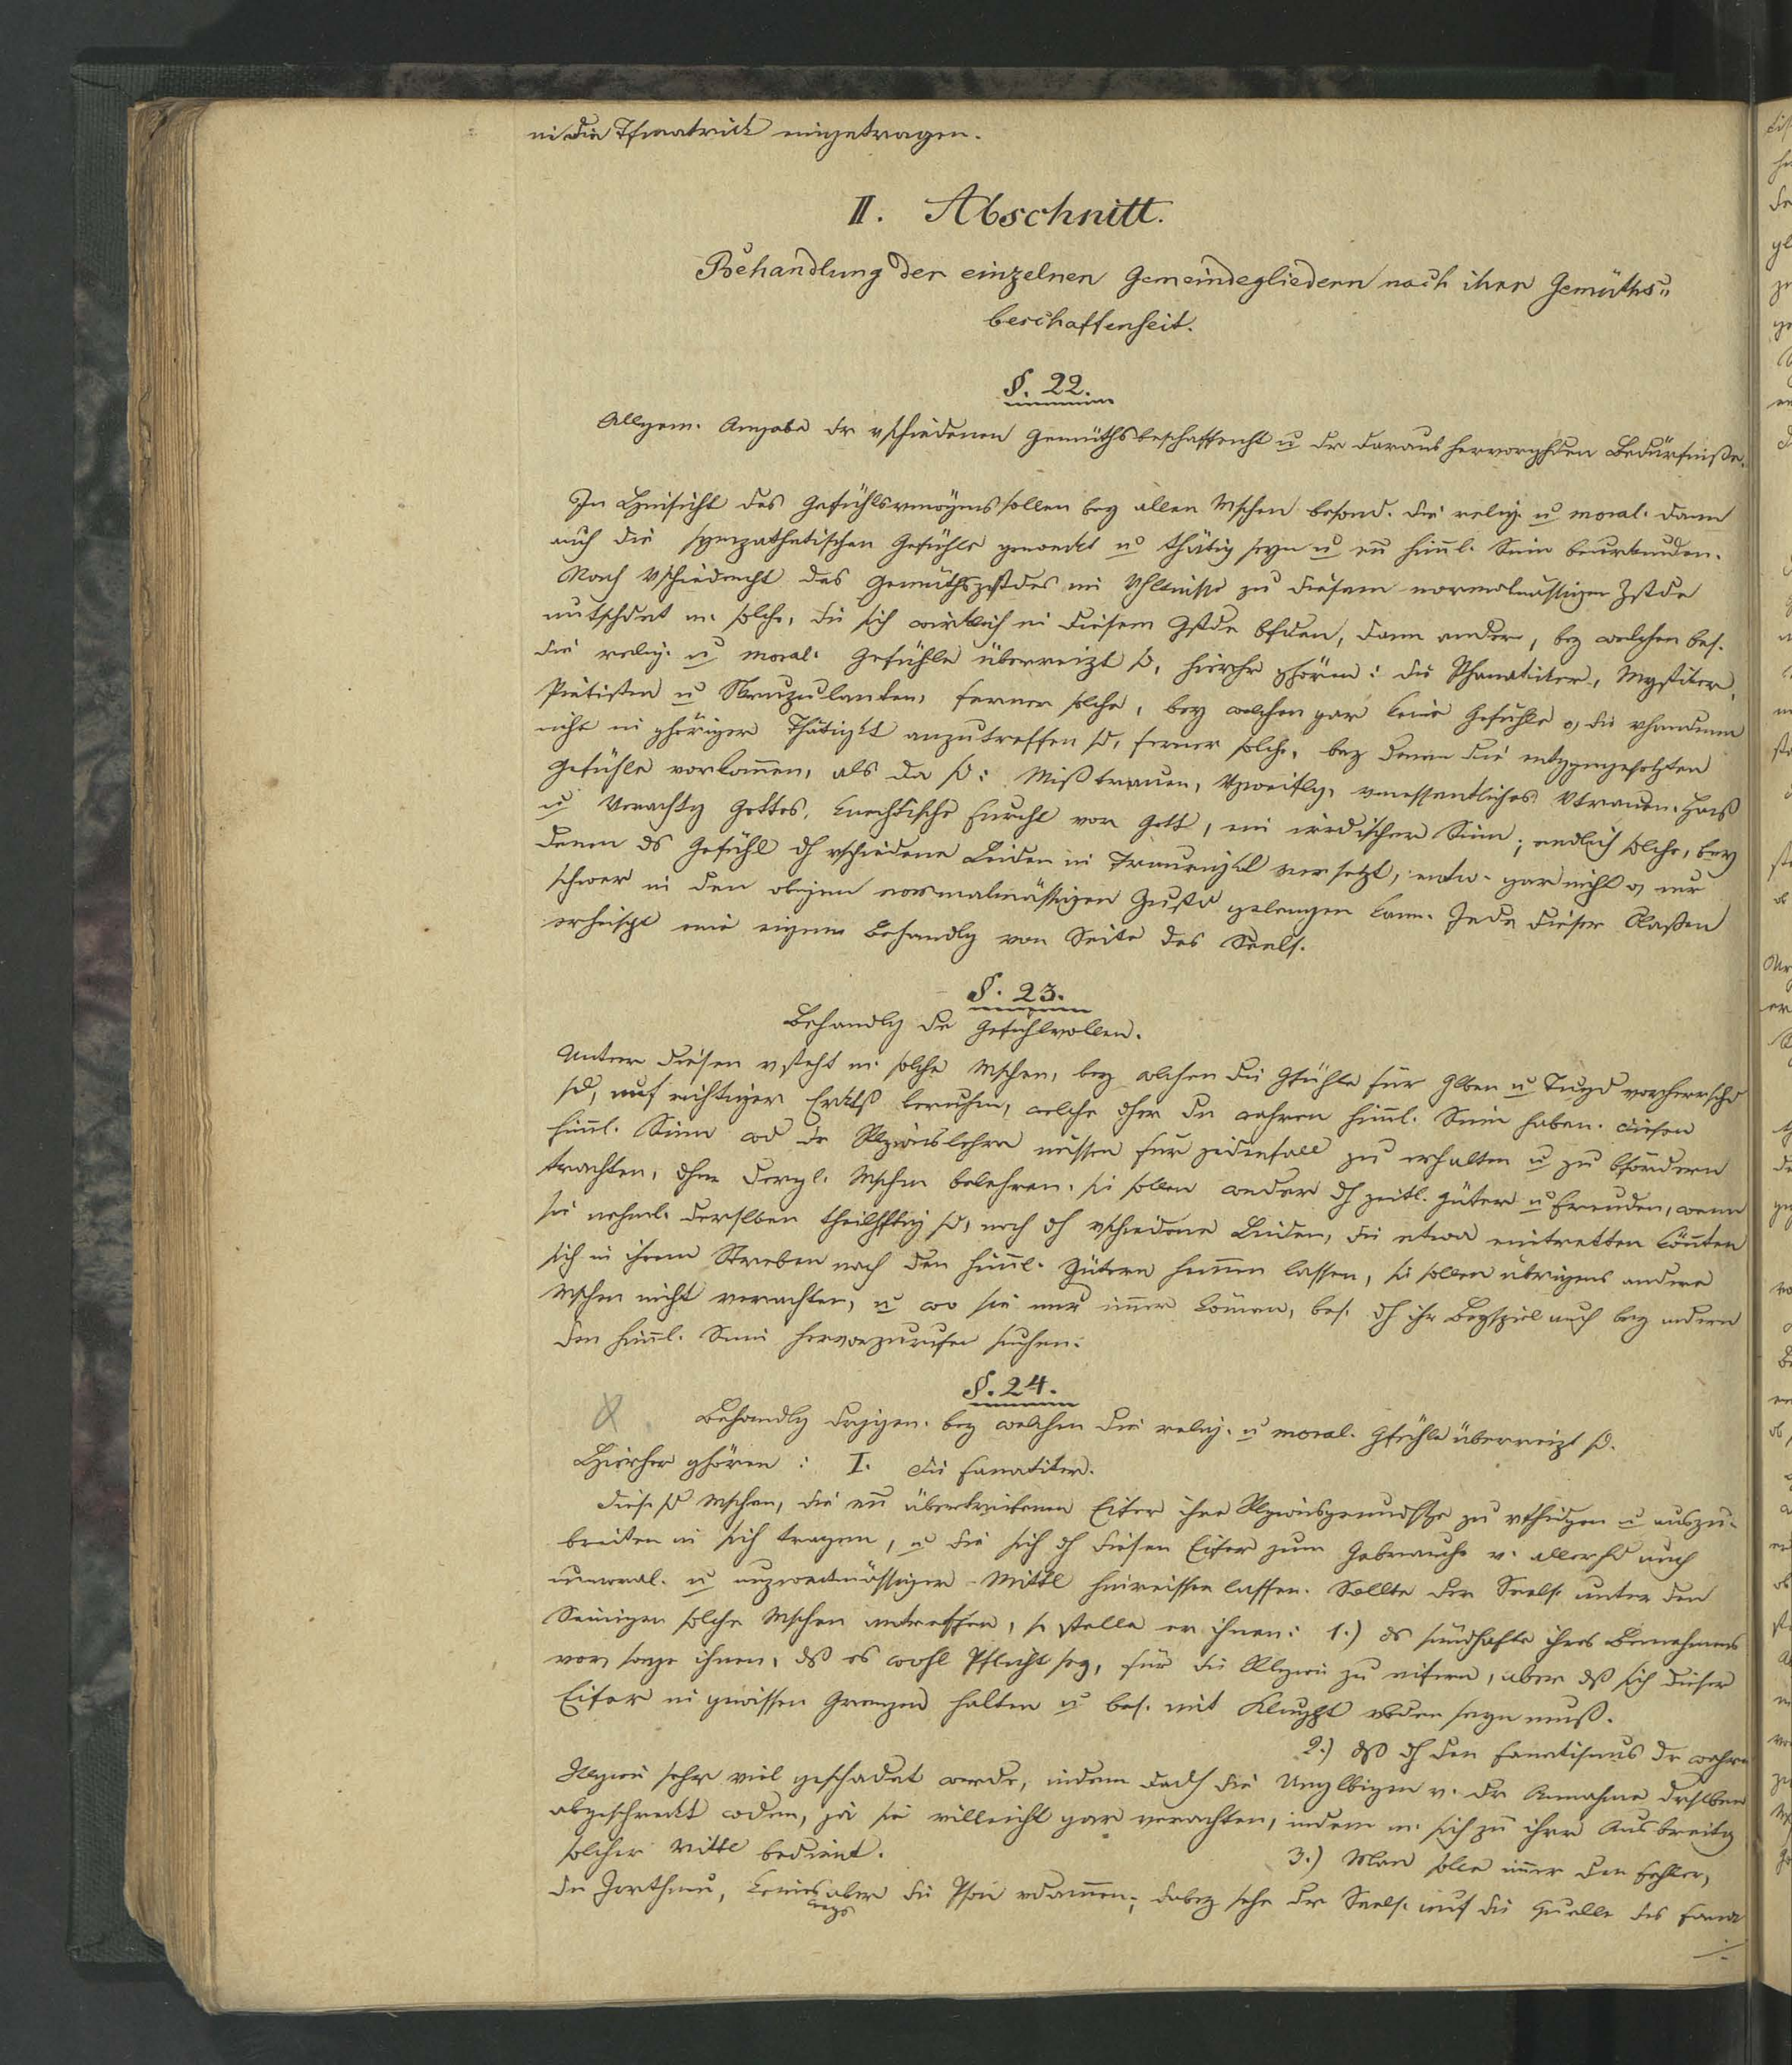 in die Tfmatrick eingetragen.
II. Abschnitt.
Behandlung der einzelnen Gemeindegliedern nach ihrer Gemüths„
beschaffenheit.
§. 22.
Allgem. Angabe dr vschiedenen Gemüthsbeschaffenht u dr daraus hervorghden Bedürfniße.
In Hinsicht des Gefühlsvmögens sollen bey allen Mschen besond. die relig. u moral. dann
auch die sympathetischen Gefühle geweckt u thätig seyn u en himl. Sinn beurkunden.
Nach Vschiednht des Gemüthszstdes im Vhltnisse zu diesem normalmässigen Zstde
untschdet m. solche, die sich wirklich in diesem Zstde bfden, dann andere, bey welchen bes.
die relig. u moral. Gefühle überreizt sd, hierher ghören: die Phanatiker, Mystiker,
Pietisten u Skrupulanten, ferner solche, bey welchen gar keine Gefühle o, die vhandenen
nicht in ghöriger Thätigkt anzutreffen sd, ferner solche, bey denen die entggengesetzten
Gefühle vorkomen, als da sd: Mißtrauen, Vzweiflg, vmessentliches Vtrauen, Haß
u Verachtg Gottes, knechtische Furcht vor Gott, ein irdischer Sinn; endlich solche, bey
denen ds Gefühl dh vschiedene Leiden in Traurigkt versetzt, entw. gar nicht o, nur
schwer in den obigen normalmässigen Zustd gelangen kann. Jede dieser Klaßen
erheischt eine eigene Behandlg von Seite des Seels.
§. 23.
Behandlg dr Gefühlvollen.
Unter diesen vsteht m. solche Mschen, bey welchen die Gfühle für Glben u Tugd vorherrschd
sd, auf richtiger Erktß beruhen, welche dher dn wahren himl. Sinn haben. Diesen
himl. Sinn wd dr Rlgionslehrer müssen für jedenfall zu erhalten u zu bfördern
trachten, ohne dergl. Mschen belehren. sie sollen weder dh zeitl. Güter u Freuden, wenn
sie nehml. derslben theilhftig sd, noch dh vschiedene Leiden, die etwa eintretten könten
sich in ihrem Streben nach den himl. Gütern hemen lassen, sie sollen übrigens andere
Mschen nicht verachten, u wo sie nur imer könen, bes. dh ihr Beyspiel auch bey andern
den himl. Sinn hervorzurufen suchen.
§. 24.
Behandlg drjgen. bey welchen die relig. u moral. Gfühle überreizt sd.
Hierher ghören: I. die Fanatiker.
Diese sd Mschen, die en übertriebenen Eifer ihre Rlgionsgrundstze zu vthidgen u auszu-
breiten in sich tragen, u die sich dh diesen Eifer zum Gebrauche v. allerhd auch
unmoral. u unzweckmässiger Mittel hinreissen lassen. Sollte der Seels. unter den
Seinigen solche Mschen antreffen, so stelle er ihnen: 1.) ds sündhafte ihres Benehmens
vor, sage ihnen, dß es wohl Pflicht sey, für die Rlgion zu eifern, aber dß sich dieser
Eifer in gewissen Grenzen halten u bes. mit Klughht vbden seyn muß.
2.) dß dh den Fanatismus dr wahren
Rlgion sehr viel geschadet werde, indem dadh die Unglbigen v. dr Annahme drslben
abgeschreckt wden, ja sie villeicht gar verachten, indem m. sich zu ihrer Ausbreitg
solcher Mittl bedient.
3.) Man solle imer den Fehler,
dn Irrthum, keines aber die Pson vdamen; dabey sehe der Seels. auf die Quelle des Fana
wegs